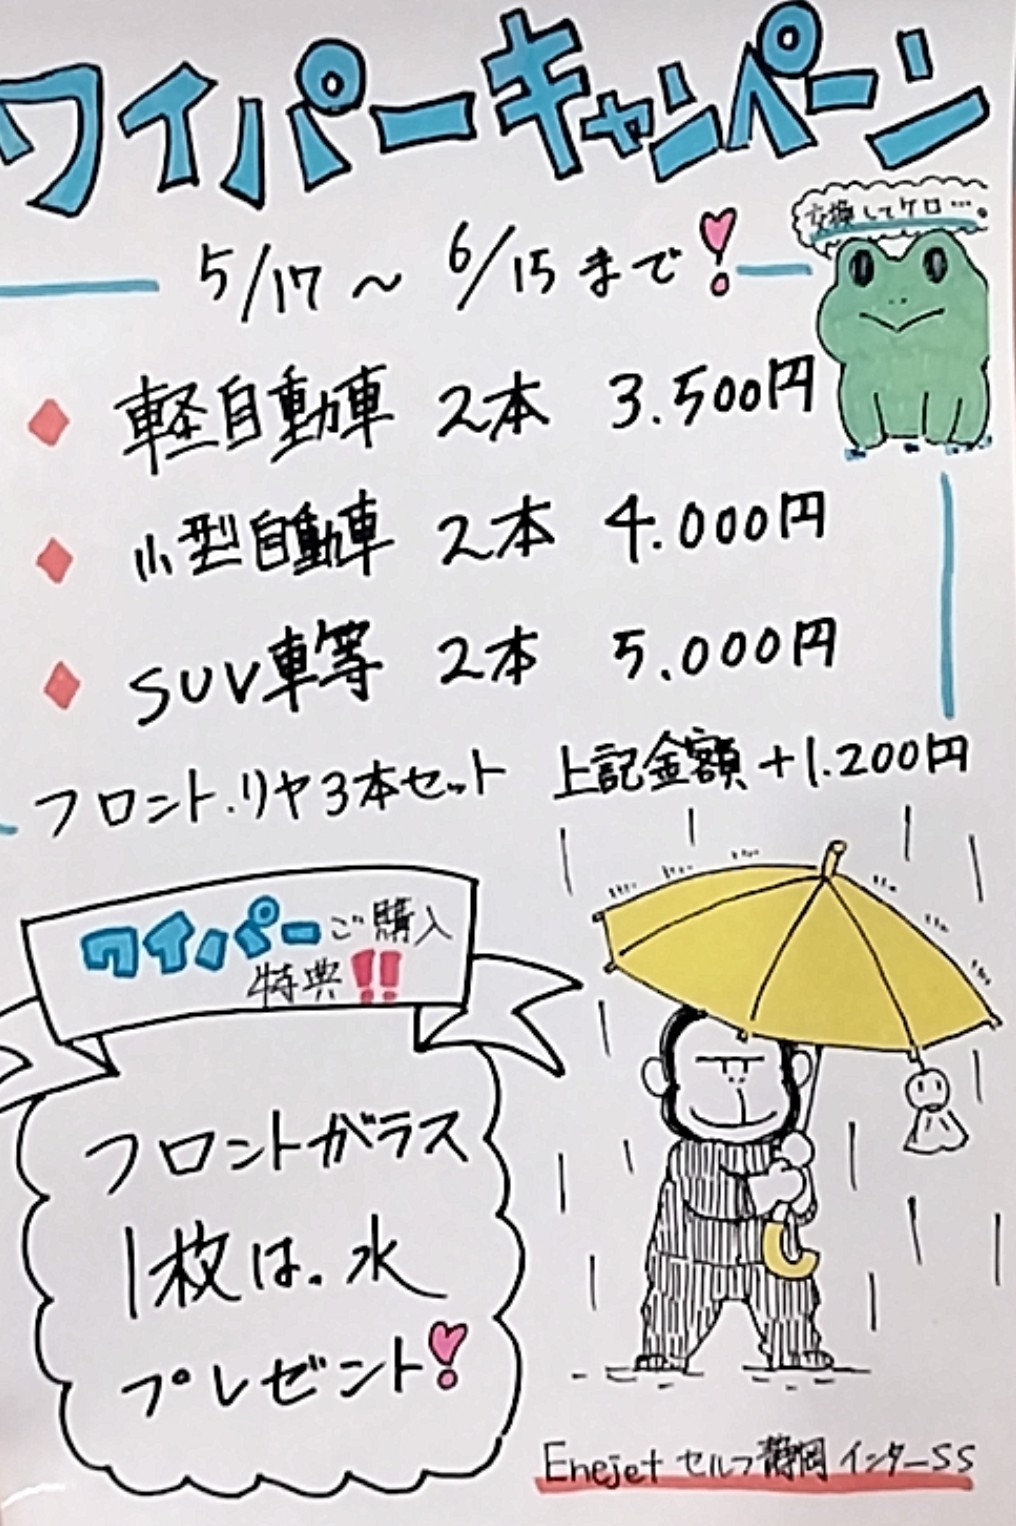 ワイパーキャンペーン
交換してケロ…。
5/17～6/15まで!
軽自動車 2本 3.500円
小型自動車 2本 4.000円
SUV車等 2本 5.000円
フロント.リヤ3本セット 上記金額+1.200円
ワイパーご購入
特典!!
フロントガラス
1枚は.水
プレゼント!
Enejet セルフ静岡インターSS